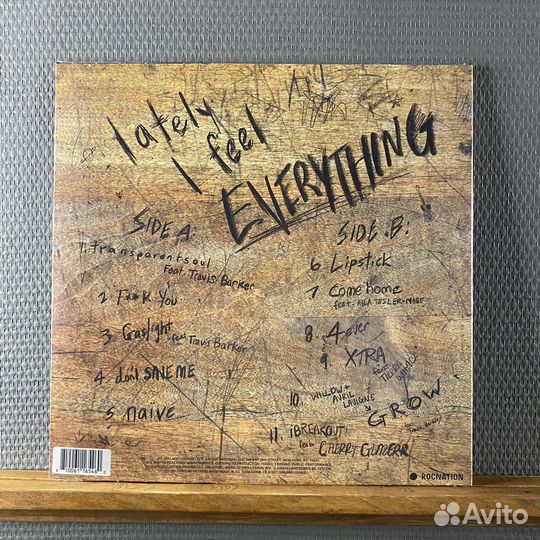 lately
I feel
EVERYTHING
SIDE A:
1. transparentsoul
feat. Travis Barker
2 F**K You
3 Gaslight feat Travis Barker
4 don't SAVE ME
5 naïve
SIDE B:
6 Lipstick
7 Come home
feat.
8. 4ever
9 XTRA
feat. Tierra Whack
10. WILLOW + AVRIL LAVIGNE
GROW
11 iBREAKOUT!
feat. CHERRY GLAZERR
ROCNATION
Avito